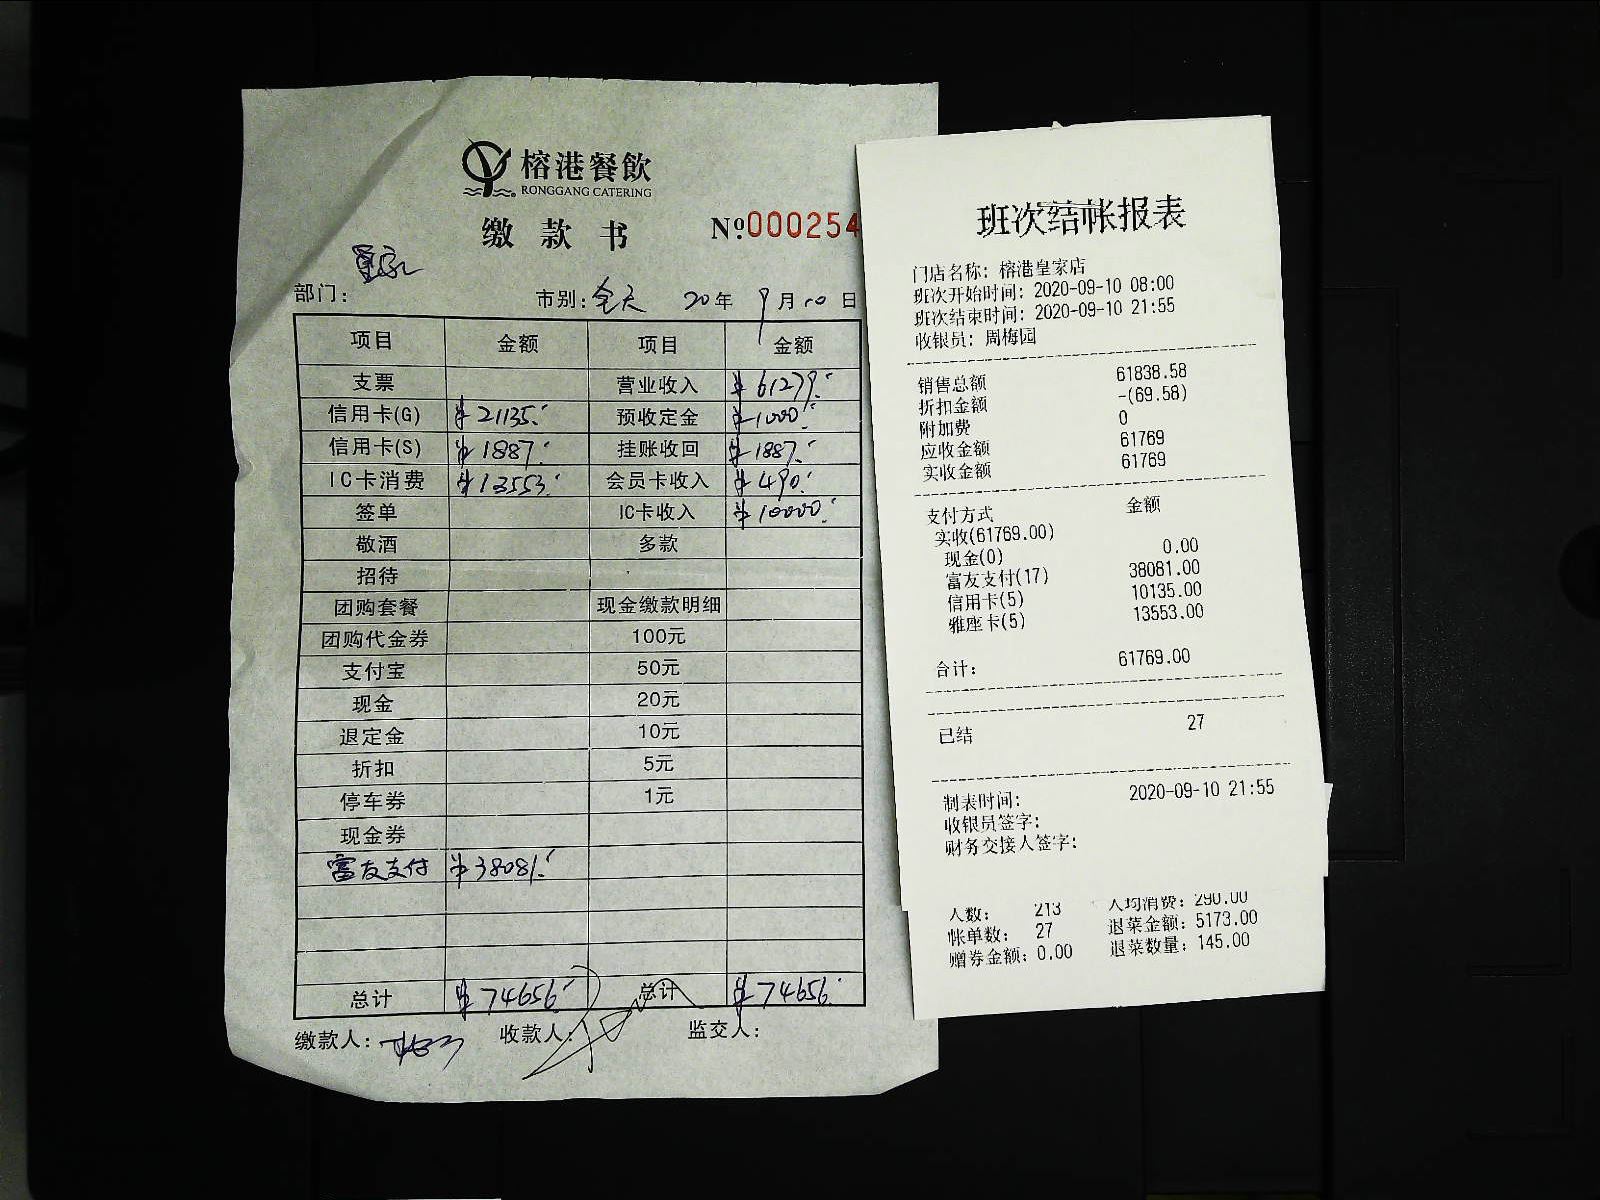 榕港餐飲
RONGGANG CATERING
缴款书 Nº000254
部门: 皇家
市别: 全天 20年 9月10日
项目 金额 项目 金额
支票 营业收入 ¥61279.-
信用卡(G) ¥21135.- 预收定金 ¥1000.-
信用卡(S) ¥1887.- 挂账收回 ¥1887.-
IC卡消费 ¥13553.- 会员卡收入 ¥490.-
签单 IC卡收入 ¥10000.-
敬酒 多款
招待
团购套餐 现金缴款明细
团购代金券 100元
支付宝 50元
现金 20元
退定金 10元
折扣 5元
停车券 1元
现金券
富友支付 ¥38081.-
总计 ¥74656.- 总计 ¥74656.-
缴款人: 收款人: 监交人:
班次结帐报表
门店名称: 榕港皇家店
班次开始时间: 2020-09-10 08:00
班次结束时间: 2020-09-10 21:55
收银员: 周梅园
销售总额 61838.58
折扣金额 -(69.58)
附加费 0
应收金额 61769
实收金额 61769
支付方式 金额
实收(61769.00)
现金(0) 0.00
富友支付(17) 38081.00
信用卡(5) 10135.00
雅座卡(5) 13553.00
合计: 61769.00
已结 27
制表时间: 2020-09-10 21:55
收银员签字:
财务交接人签字:
人数: 213 人均消费: 290.00
帐单数: 27 退菜金额: 5173.00
赠券金额: 0.00 退菜数量: 145.00